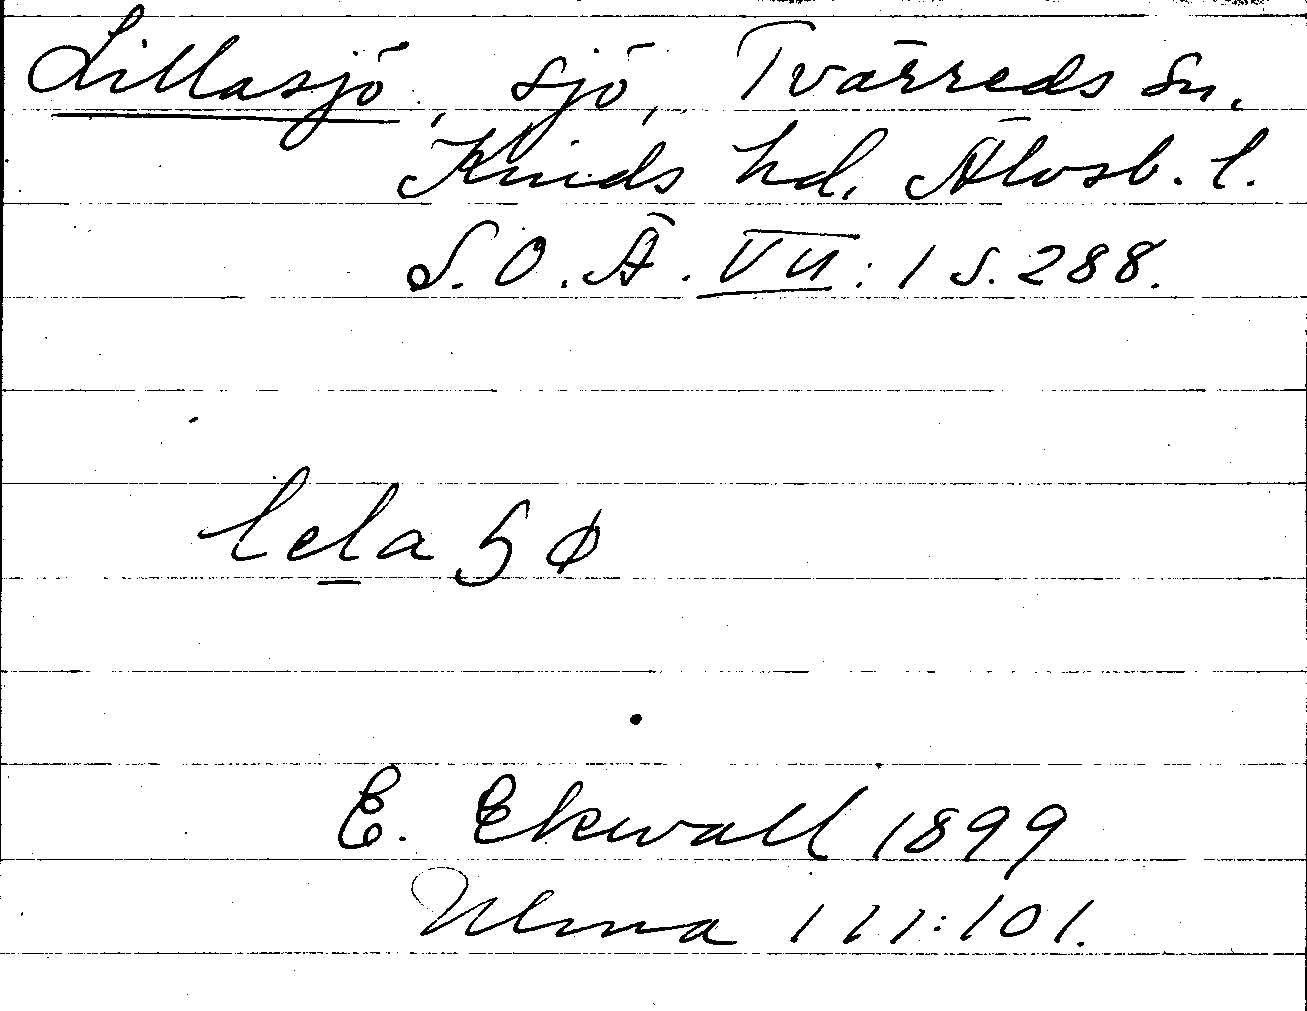 Lillasjö, sjö, Tvärreds sn.
Kinds hd, Älvsb. l.
S.O.Ä. VII:1 s. 288.
lela ɧø
E. Ekwall 1899
Ulma 111:101.